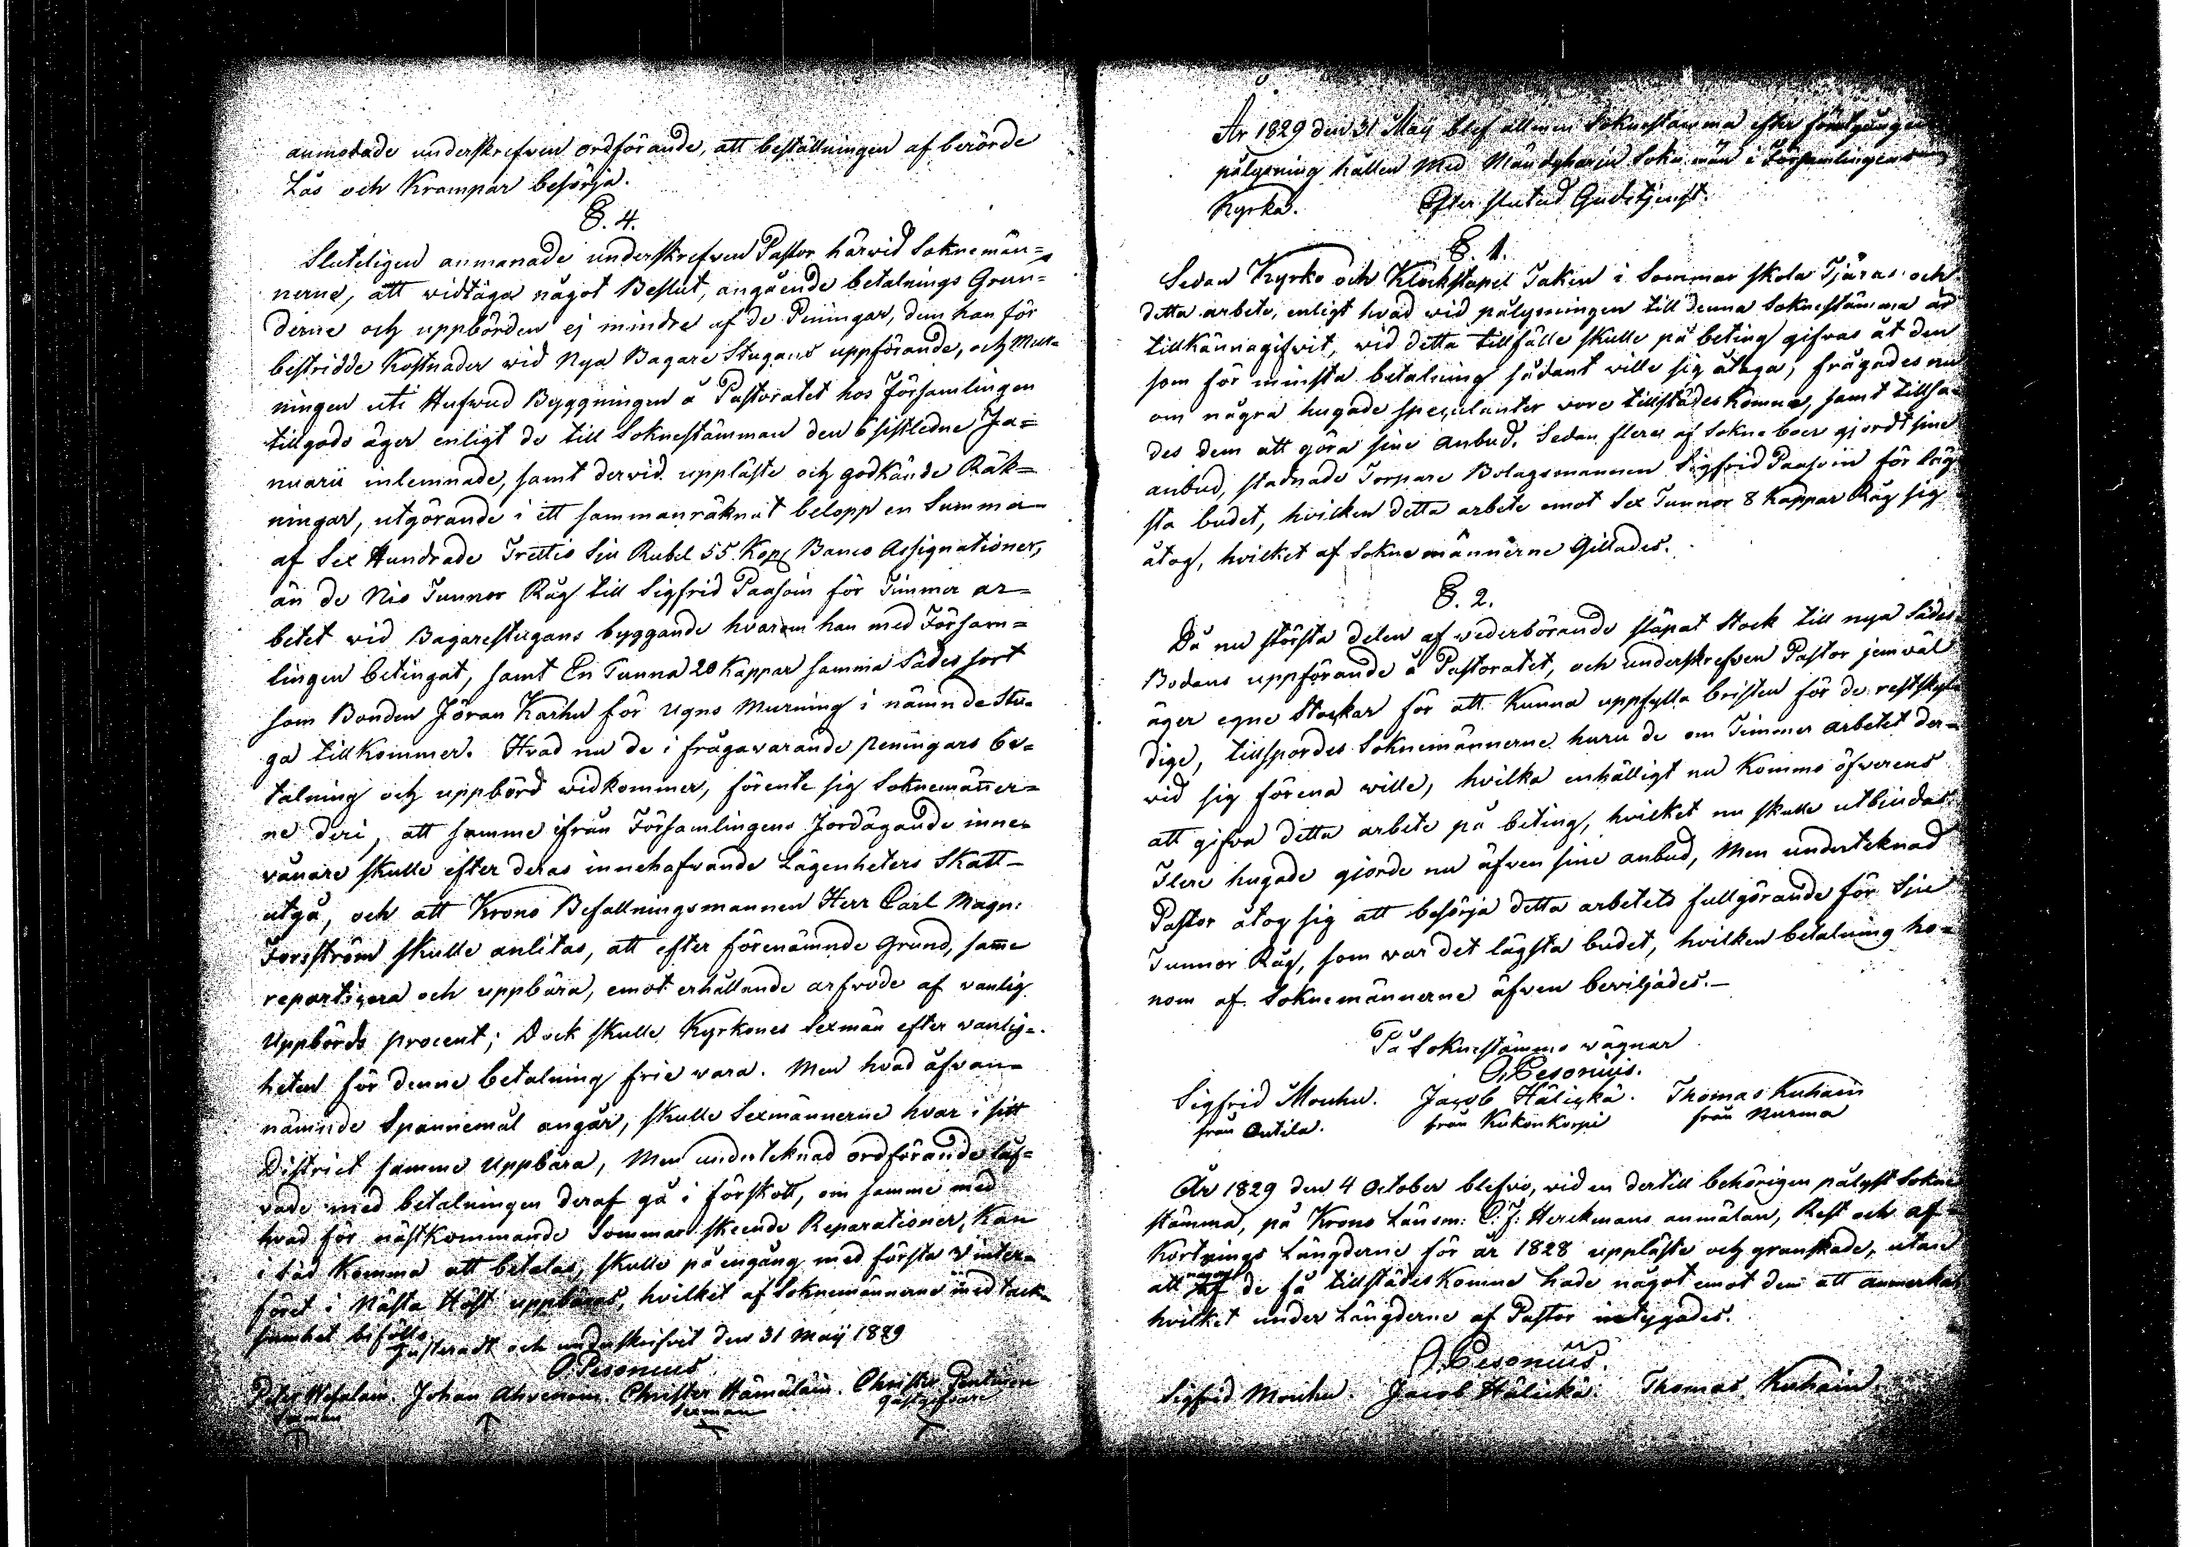 anmodade underskrefven ordförande, att beställningen af berörde
Lås och Krampar besörja.
§. 4.
Sluteligen anmanade underskrefven Pastor härwid Soknemän=
nerne, att widtaga något Beslut, angående betalnings Grun=
derne och uppbörden ej mindre af de Penningar, dem han för
bestridde Kostnader wid Nya Bagare Stugans uppförande, och Mur=
ningen uti Hufwud Byggningen å Pastoratet hos Församlingen
tillgodo äger enligt de till Soknestämman den 6 sistledne Ja=
nuarii inlemnade, samt derwid uppläste och godkände Räk=
ningar, utgörande i ett sammanräknat belopp en Summa
af Sex Hundrade Trettio Sju Rubel 55 Kop Banco Assignationer,
än de Nio Tunnor Råg till Sigfrid Paasoin för Timmer ar=
betet wid Bagarestugans byggande hvarom han med Försam=
lingen betingat, samt En Tunna 20 Kappar samma Sädes sort
som Bonden Jöran Karhu för Ugns Murning i nämnde Stu=
ga tillkommer. Hvad nu de i frågawarande peningars be=
talning och uppbörd widkommer, förente sig Soknemänner=
ne deri, att samme ifrån Församlingens Jordägande inne=
vånare skulle efter deras innehafvande Lägenheters Skatt
utgå, och att Krono Befallningsmannen Herr Carl Magn:
Forsström skulle anlitas, att efter förenämnde Grund, same
repartiçera och uppbära, emot erhållande arfvode af vanlig
Uppbörds procent; Dock skulle Kyrkones Sexmän efter vanlig=
heten för denne betalning frie vara. Men hvad åfvan=
nämnde Spannemål angår, skulle Sexmännerne hvar i sitt
District samme Uppbära, Men underteknad ordförande luf=
vade med betalningen deraf gå i förskott, om samme med
hvad för nästkommande Sommar skeende Reparationer, kan
i säd komma att betalas, skulle på engång med första Winter=
föret i Nästa Höst uppbäras, hvilket af Soknemännerne med tack=
samhet bifölls.
Justeradt och underskrifvit den 31 Maij 1829
O. Pesonius
Johan Ahvenain. Christer Hämäläin. Christer Pentinen
Sexman Sexman Gästgifvare
År 1829 den 31 Maij blef allmen Soknestämma efter föregången
pålysning hållen Med Mändgharin Sokn män i Församlingens
Kyrka. Efter slutad Gudstjenst.
§. 1.
Sedan Kyrko och Klockstapel Taken i Sommar skola Tjäras och
detta arbete, enligt hvad wid pålysningen till denna Soknestämma är
tillkännagifwit, wid detta tillfälle skulle på beting gifvas åt den
som för minsta betalning sådant wille sig åtaga; frågades nu
om några hugade speculanter wore tillstädeskomne, samt tillsa=
des dem att göra sine anbud. Sedan flere af Sokneboer gjordt sine
anbud, stadnade Torpare Bolagsmannen Sigfrid Paasoin för läg=
sta budet, hvilken detta arbete emot Sex Tunnor 8 Kappar Råg sig
åtog, hvilket af Soknemännerne Gillades.
§. 2.
Då nu största delen af wederbörande släpat Stock till nya Sädes
Bodans uppförande å Pastoratet, och underskrefven Pastor jemväl
äger egne Stockar för att kunna uppfylla bristen för de restskyl=
dige, tillspordes Soknemännerne huru de om Timmer arbetet der=
vid sig förena wille, hvilka enhälligt nu kommo öfverens
att gifva detta arbete på beting, hvilket nu skulle utbindas.
Flere hugade gjorde nu äfven sine anbud, Men underteknad
Pastor åtog sig att besörja detta arbetets fullgörande för Sju
Tunnor Råg, som war det lägsta budet, hvilken betalning ho=
nom af Soknemännerne äfven beviljades.—
På Soknestämmo vägnar
O. Pesonius.
Sigfrid Mouhu. Jacob Hälickä. Thomas Kuhain
från Antila. från Kukonkorpi från Nurma
År 1829 den 4 October blefvo, vid en dertill behörigen pålyst Sokne
stämma, på Krono Länsm: C. J: Herckmans anmälan, Rest och af=
kortnings Längderne för år 1828 uppläste och granskade, utan
att någon af de få tillstädeskomne hade något emot dem att anmerka,
hvilket under Längderne af Pastor intygades.
O. Pesonius.
Sigfrid Mouhu. Jacob Hälickä. Thomas Kuhain.